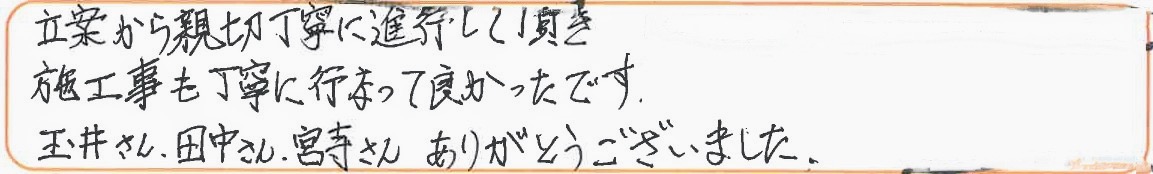 立案から親切丁寧に進行して頂き
施工事も丁寧に行なって良かったです.
玉井さん.田中さん.宮寺さん ありがとうございました.